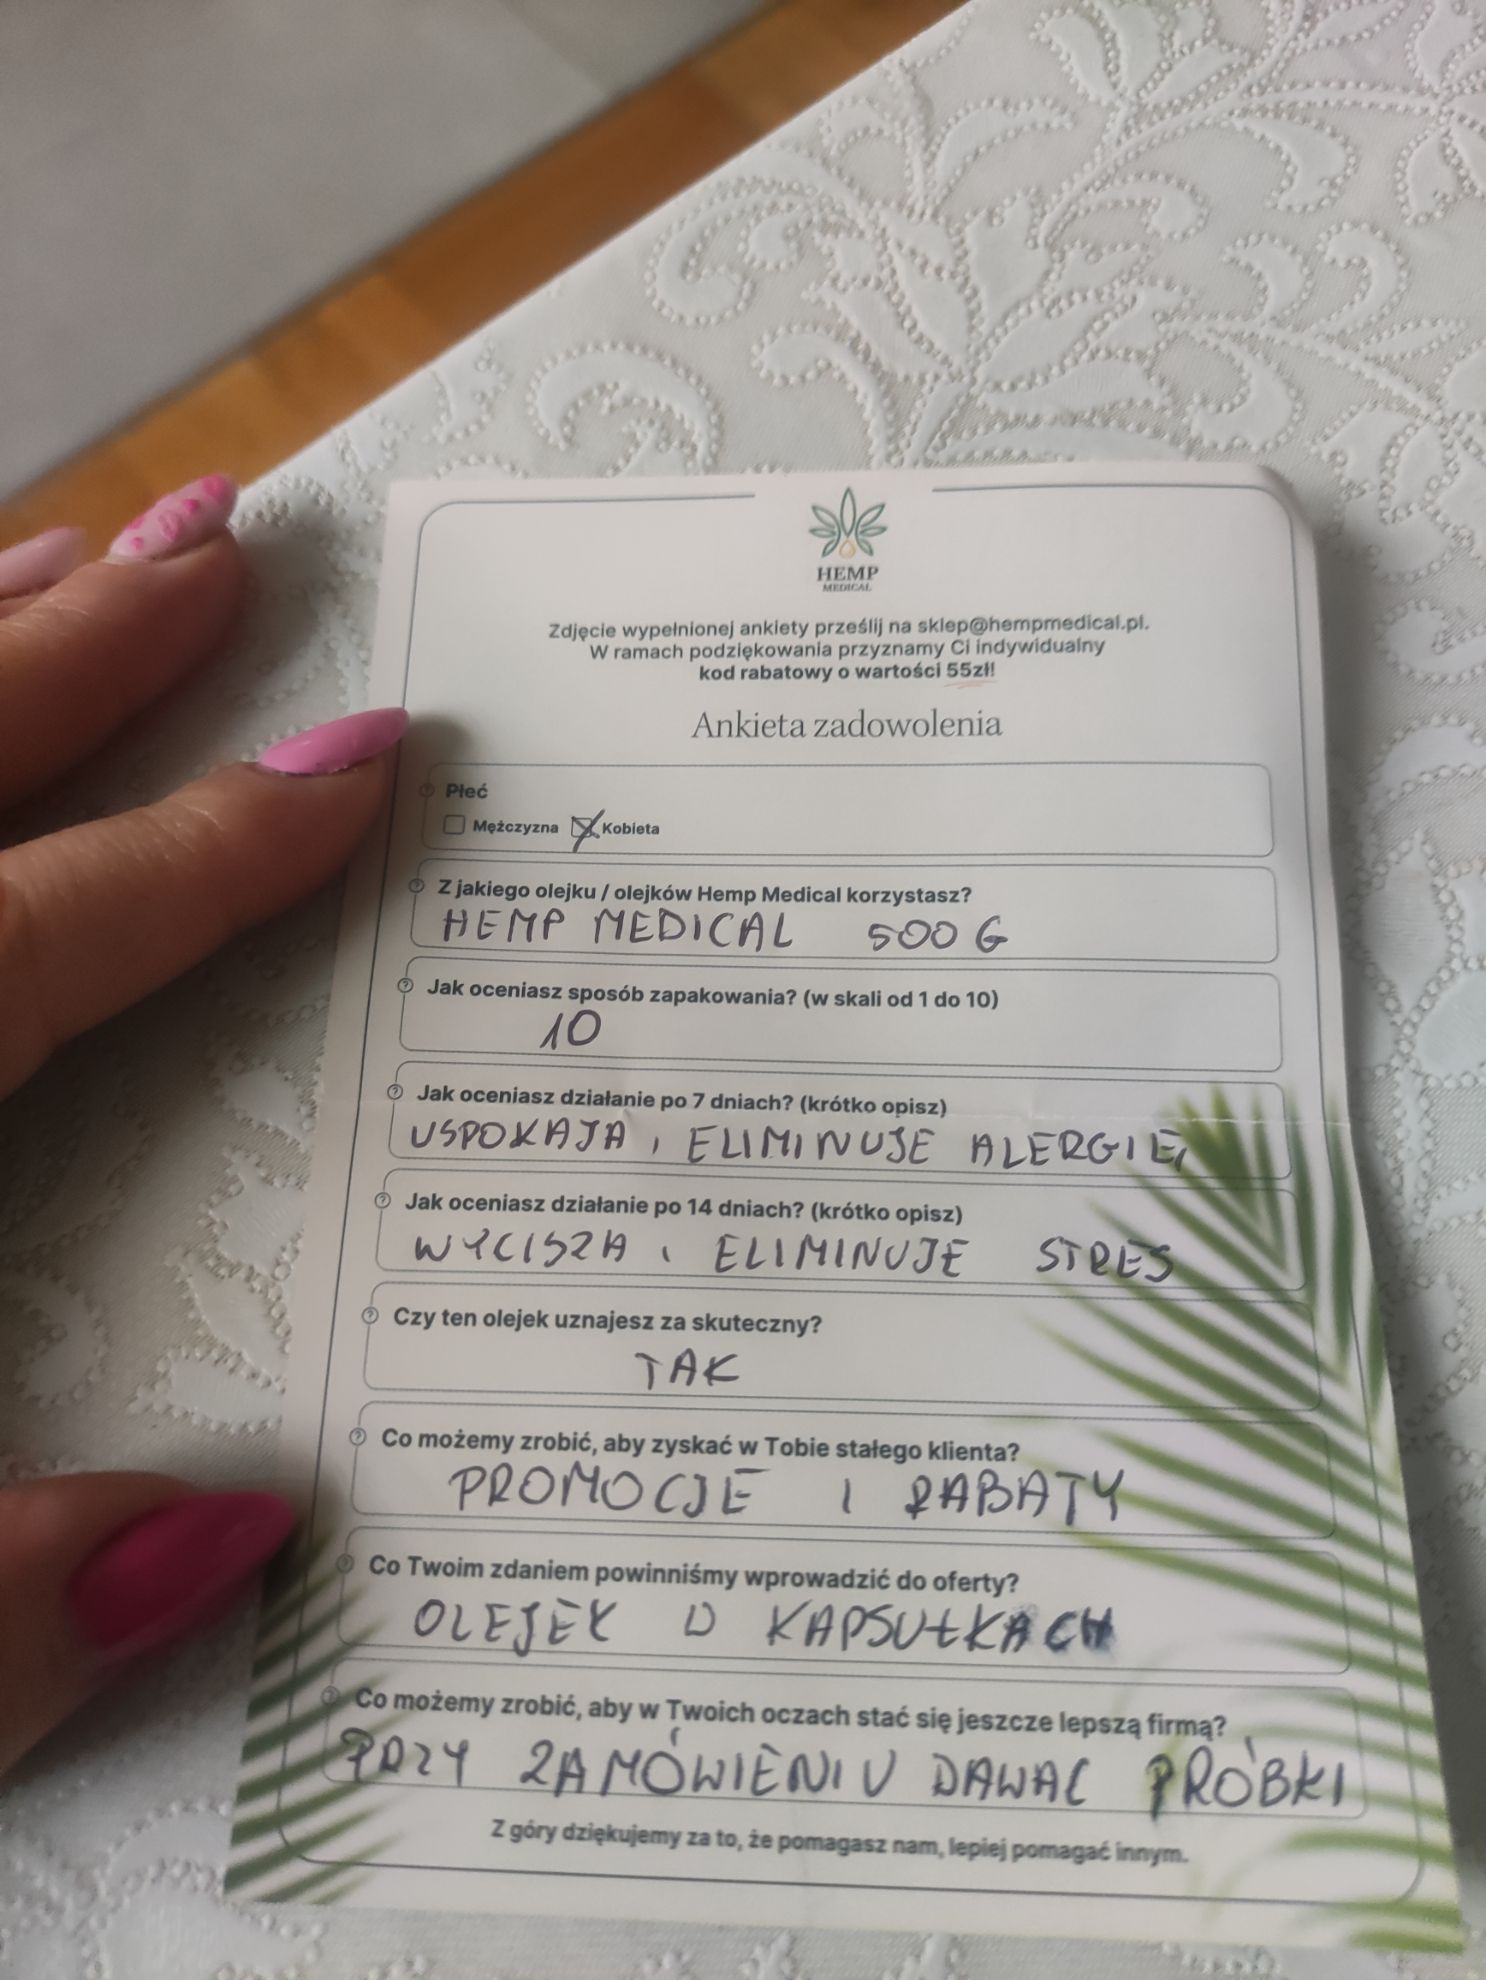 HEMP
MEDICAL
Zdjęcie wypełnionej ankiety prześlij na sklep@hempmedical.pl.
W ramach podziękowania przyznamy Ci indywidualny
kod rabatowy o wartości 55zł!
Ankieta zadowolenia
Płeć
Mężczyzna Kobieta
Z jakiego olejku / olejków Hemp Medical korzystasz?
HEMP MEDICAL 500 G
Jak oceniasz sposób zapakowania? (w skali od 1 do 10)
10
Jak oceniasz działanie po 7 dniach? (krótko opisz)
USPOKAJA, ELIMINUJE ALERGIĘ
Jak oceniasz działanie po 14 dniach? (krótko opisz)
WYCISZA, ELIMINUJE STRES
Czy ten olejek uznajesz za skuteczny?
TAK
Co możemy zrobić, aby zyskać w Tobie stałego klienta?
PROMOCJE I RABATY
Co Twoim zdaniem powinniśmy wprowadzić do oferty?
OLEJEK W KAPSUŁKACH
Co możemy zrobić, aby w Twoich oczach stać się jeszcze lepszą firmą?
PRZY ZAMÓWIENIU DAWAC PRÓBKI
Z góry dziękujemy za to, że pomagasz nam, lepiej pomagać innym.